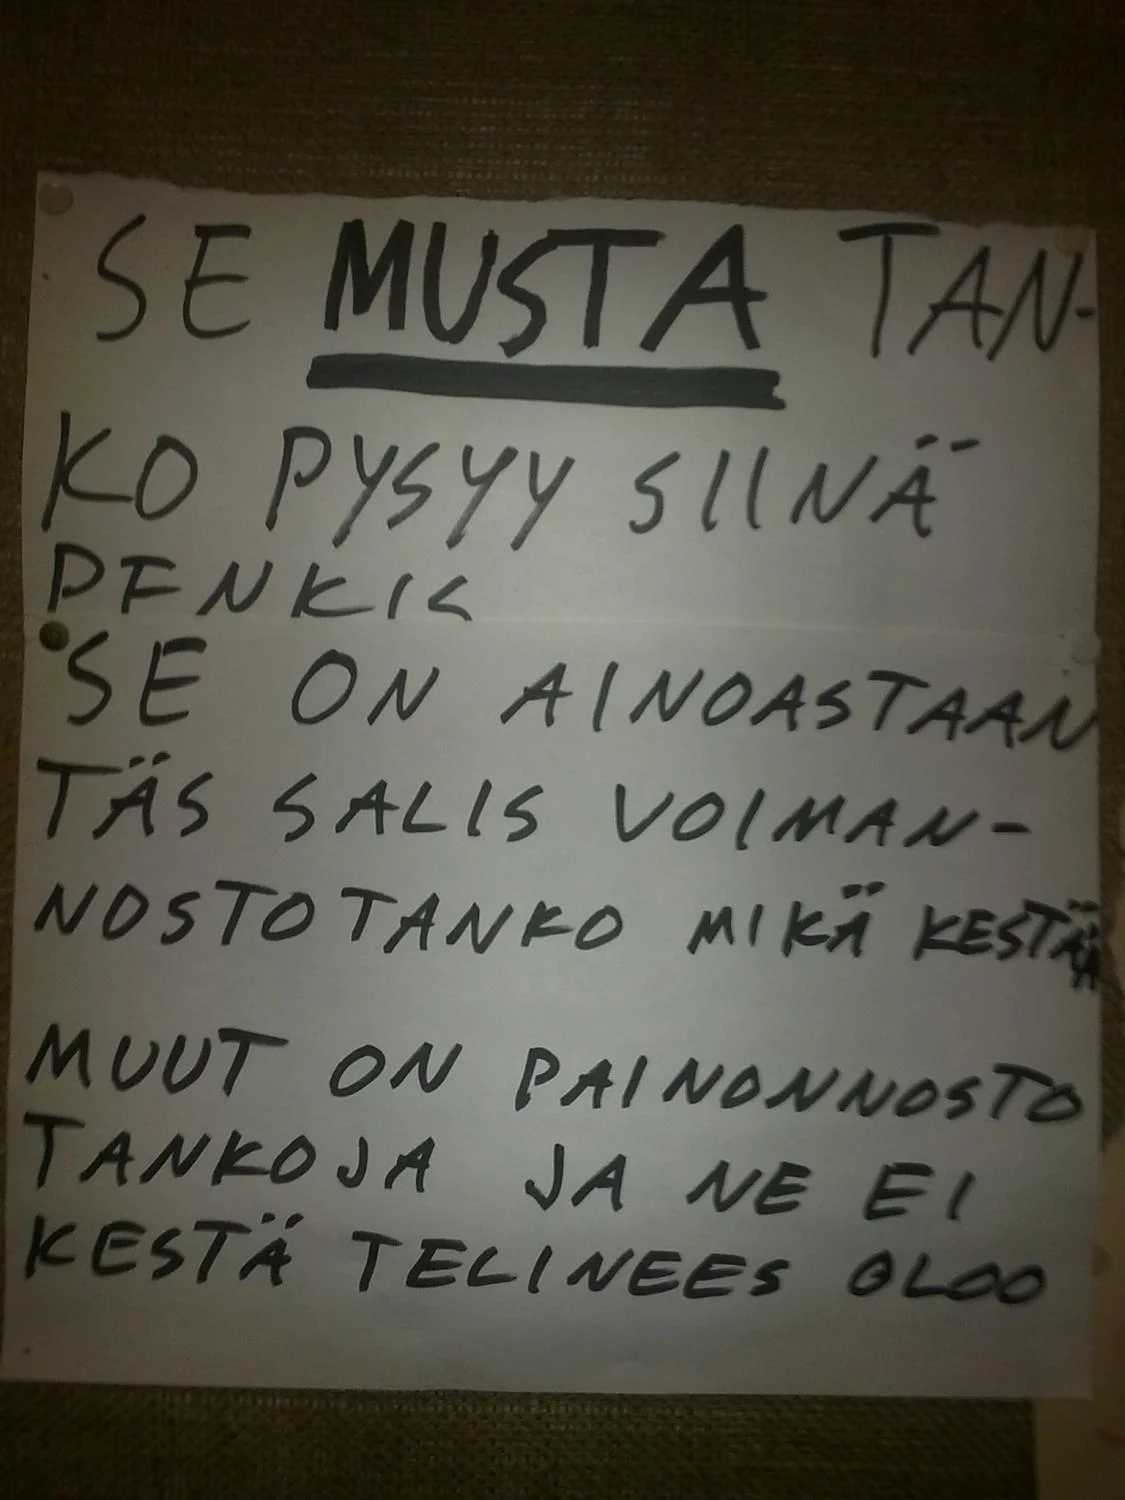 SE MUSTA TAN-
KO PYSYY SIINÄ
PENKIS
SE ON AINOASTAAN
TÄS SALIS VOIMAN-
NOSTOTANKO MIKÄ KESTÄÄ
MUUT ON PAINONNOSTO
TANKOJA JA NE EI
KESTÄ TELINEES OLOO